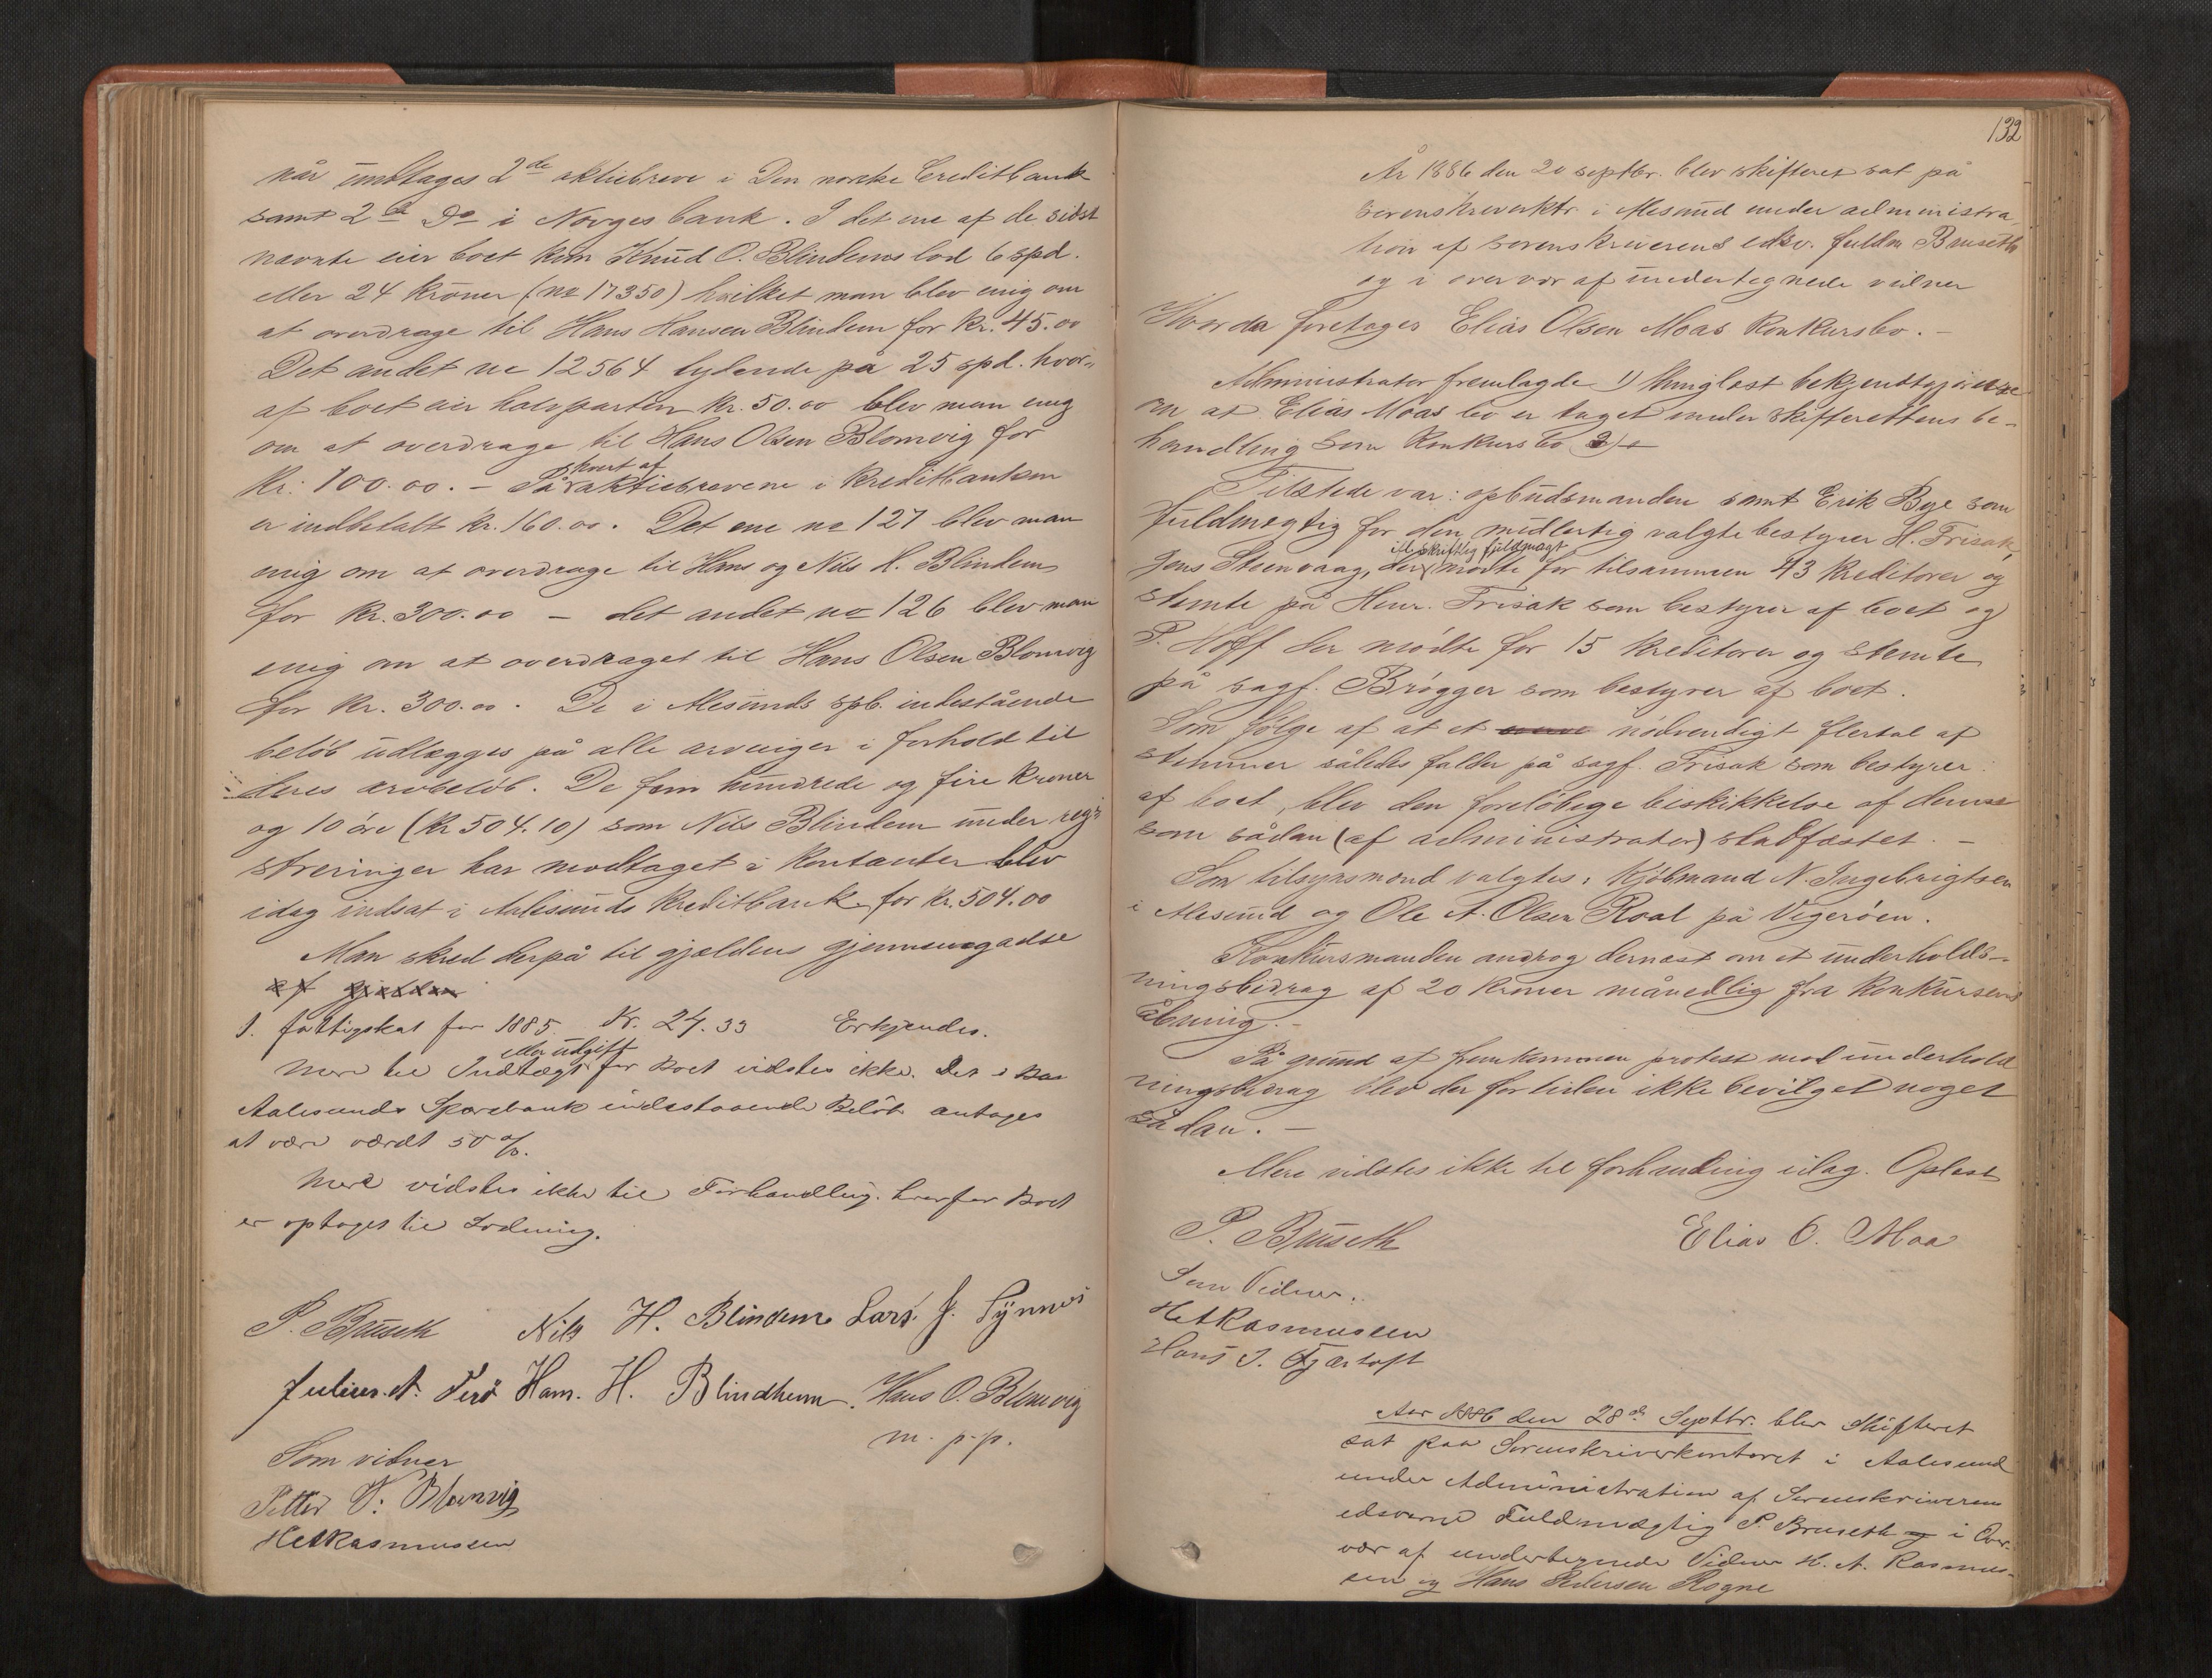 når undtages 2de aktiebreve i Den norske Creditbank
samt 2de Do i Norges bank. I det ene af de sidst
nævnte eier boet kun Knud O. Blindems lod 6 spd.
eller 24 kroner (no 17350) hvilket man blev enig om
at overdrage til Hans Hansen Blindem for kr. 45.00
Det andet no 12564 lydende på 25 spd. hvor-
af boet eier halvparten kr. 50.00 blev man enig
om at overdrage til Hans Olsen Blomvig for
hvert af
Kr: 100.00. – På aktiebrevene i Kreditbanken
er indbetalt kr. 160.00. Det ene no 127 blev man
enig om at overdrage til Hans og Nils H. Blindem
for kr. 300.00 – det andet no 126 blev man
enig om at overdraget til Hans Olsen Blomvig
for kr. 300.00. De i Alesunds spb. indestående
beløb udlægges på alle arvinger i forhold til
deres arvebeløb. De fem hundrede og fire kroner
og 10 øre (kr 504.10) som Nils Blindem under regi-
streringer har modtaget i kontanter blev
idag indsat i Aalesunds Kreditbank for kr. 504.00
Man skred derpå til gjældens gjennemgaaelse
af gjælden
1. fattigskat for 1885. Kr. 24.33 Erkjendes.
eller udgift
Mere til Indtægt for Boet vidstes ikke. Det i
Aalesunds Sparebank indestaaende Beløb antages
at være værdt 50 %.
Mere vidstes ikke til Forhandling. hvorfor Boet
er optaget til Lodning.
P. Bruseth Nils H. Blindem Lars J. Synnes
Julius A. Hans. H. Blindheim. Hans O. Blomvig
m. p. p.
Som vidner
Petter Blomvig
HARasmussen
132
År 1886 den 20 septbr. blev skifteret sat på
sorenskreverktr. i Alesund under administra
tion af sorenskriverens edsv. fuldm Bruseth
og i overvær af undertegnede vidner
Hvor da foretages Elias Olsen Moas konkursbo. –
Administrator fremlagde 1) thinglæst bekjendtgjørelse
om at Elias Moas bo er taget under skifterettens be-
handling som konkursbo 2)
Tilstede var: opbudsmanden samt Erik Bye som
fuldmægtig for den midlertig valgte bestyrer H. Frisak,
ifl. skriftlig fuldmagt
Jens Steenvaag, der mødte for tilsammen 43 kreditorer og
stemte på Henr. Frisak som bestyrer af boet og
P. Hoff der mødte for 15 kreditorer og stemte
på sagf. Brøgger som bestyrer af boet.
Som følge af at et nødvendigt flertal af
stemmer således falder på sagf. Frisak som bestyrer
af boet, blev den foreløbige beskikkelse af denne
som sådan (af administrator) stadfæstet. –
Som tilsynsmænd valgtes: Kjøbmand N. Ingebrigtsen
i Alesund og Ole A. Olsen Roal på Vigerøen.
Konkursmanden androg dernæst om et underhold-
ningsbidrag af 20 kroner månedlig fra konkursens
åbning. –
På grund af fremkommen protest mod underhold
ningsbidrag blev der for tiden ikke bevilget noget
sådan. –
Mere vidstes ikke til forhandling idag. Oplæst
P. Bruseth Elias O. Moa
Som Vidner.
HARasmussen
Hans J. Fjærtoft
Aar 1886 den 28de Septbr. blev Skifteret
sat paa Sorenskriverkontoret i Aalesund
under Administration af Sorenskriverens
edsvorne Fuldmægtig P. Bruseth og i Over-
vær af undertegnede Vidner H. A. Rasmus-
sen og Hans Pedersen Rogne